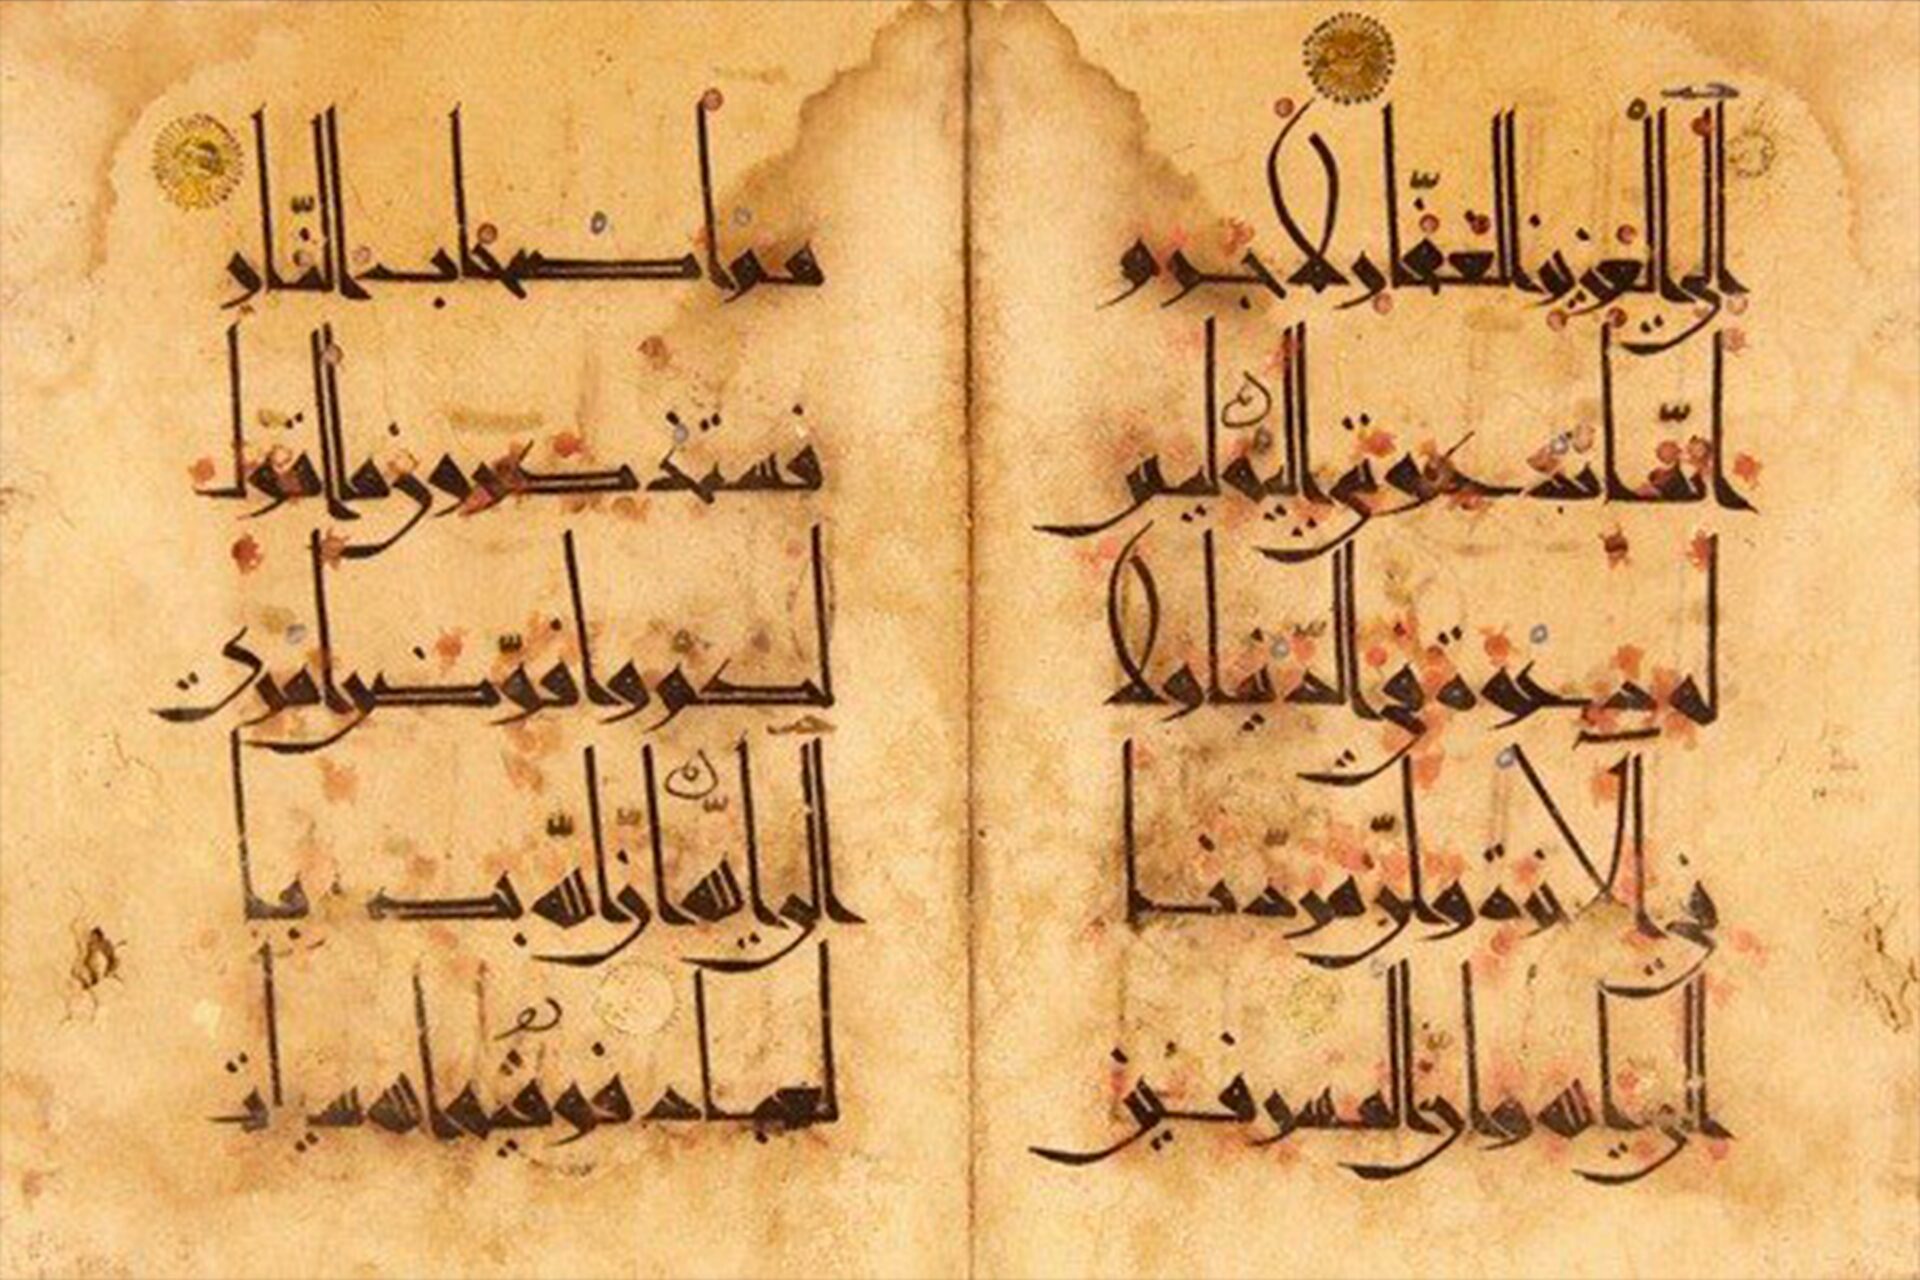 الى العزيز الغفّار لا جرم
انّما تدعونني اليه ليس
له دعوة في الدّنيا ولا
في الاخرة وانّ مردّنا
الى الله وانّ المسرفين
هم اصحاب النّار
فستذكرون ما اقول
لكم وافوّض امري
الى الله انّ الله بصير با
لعباد فوقيه الله سيات